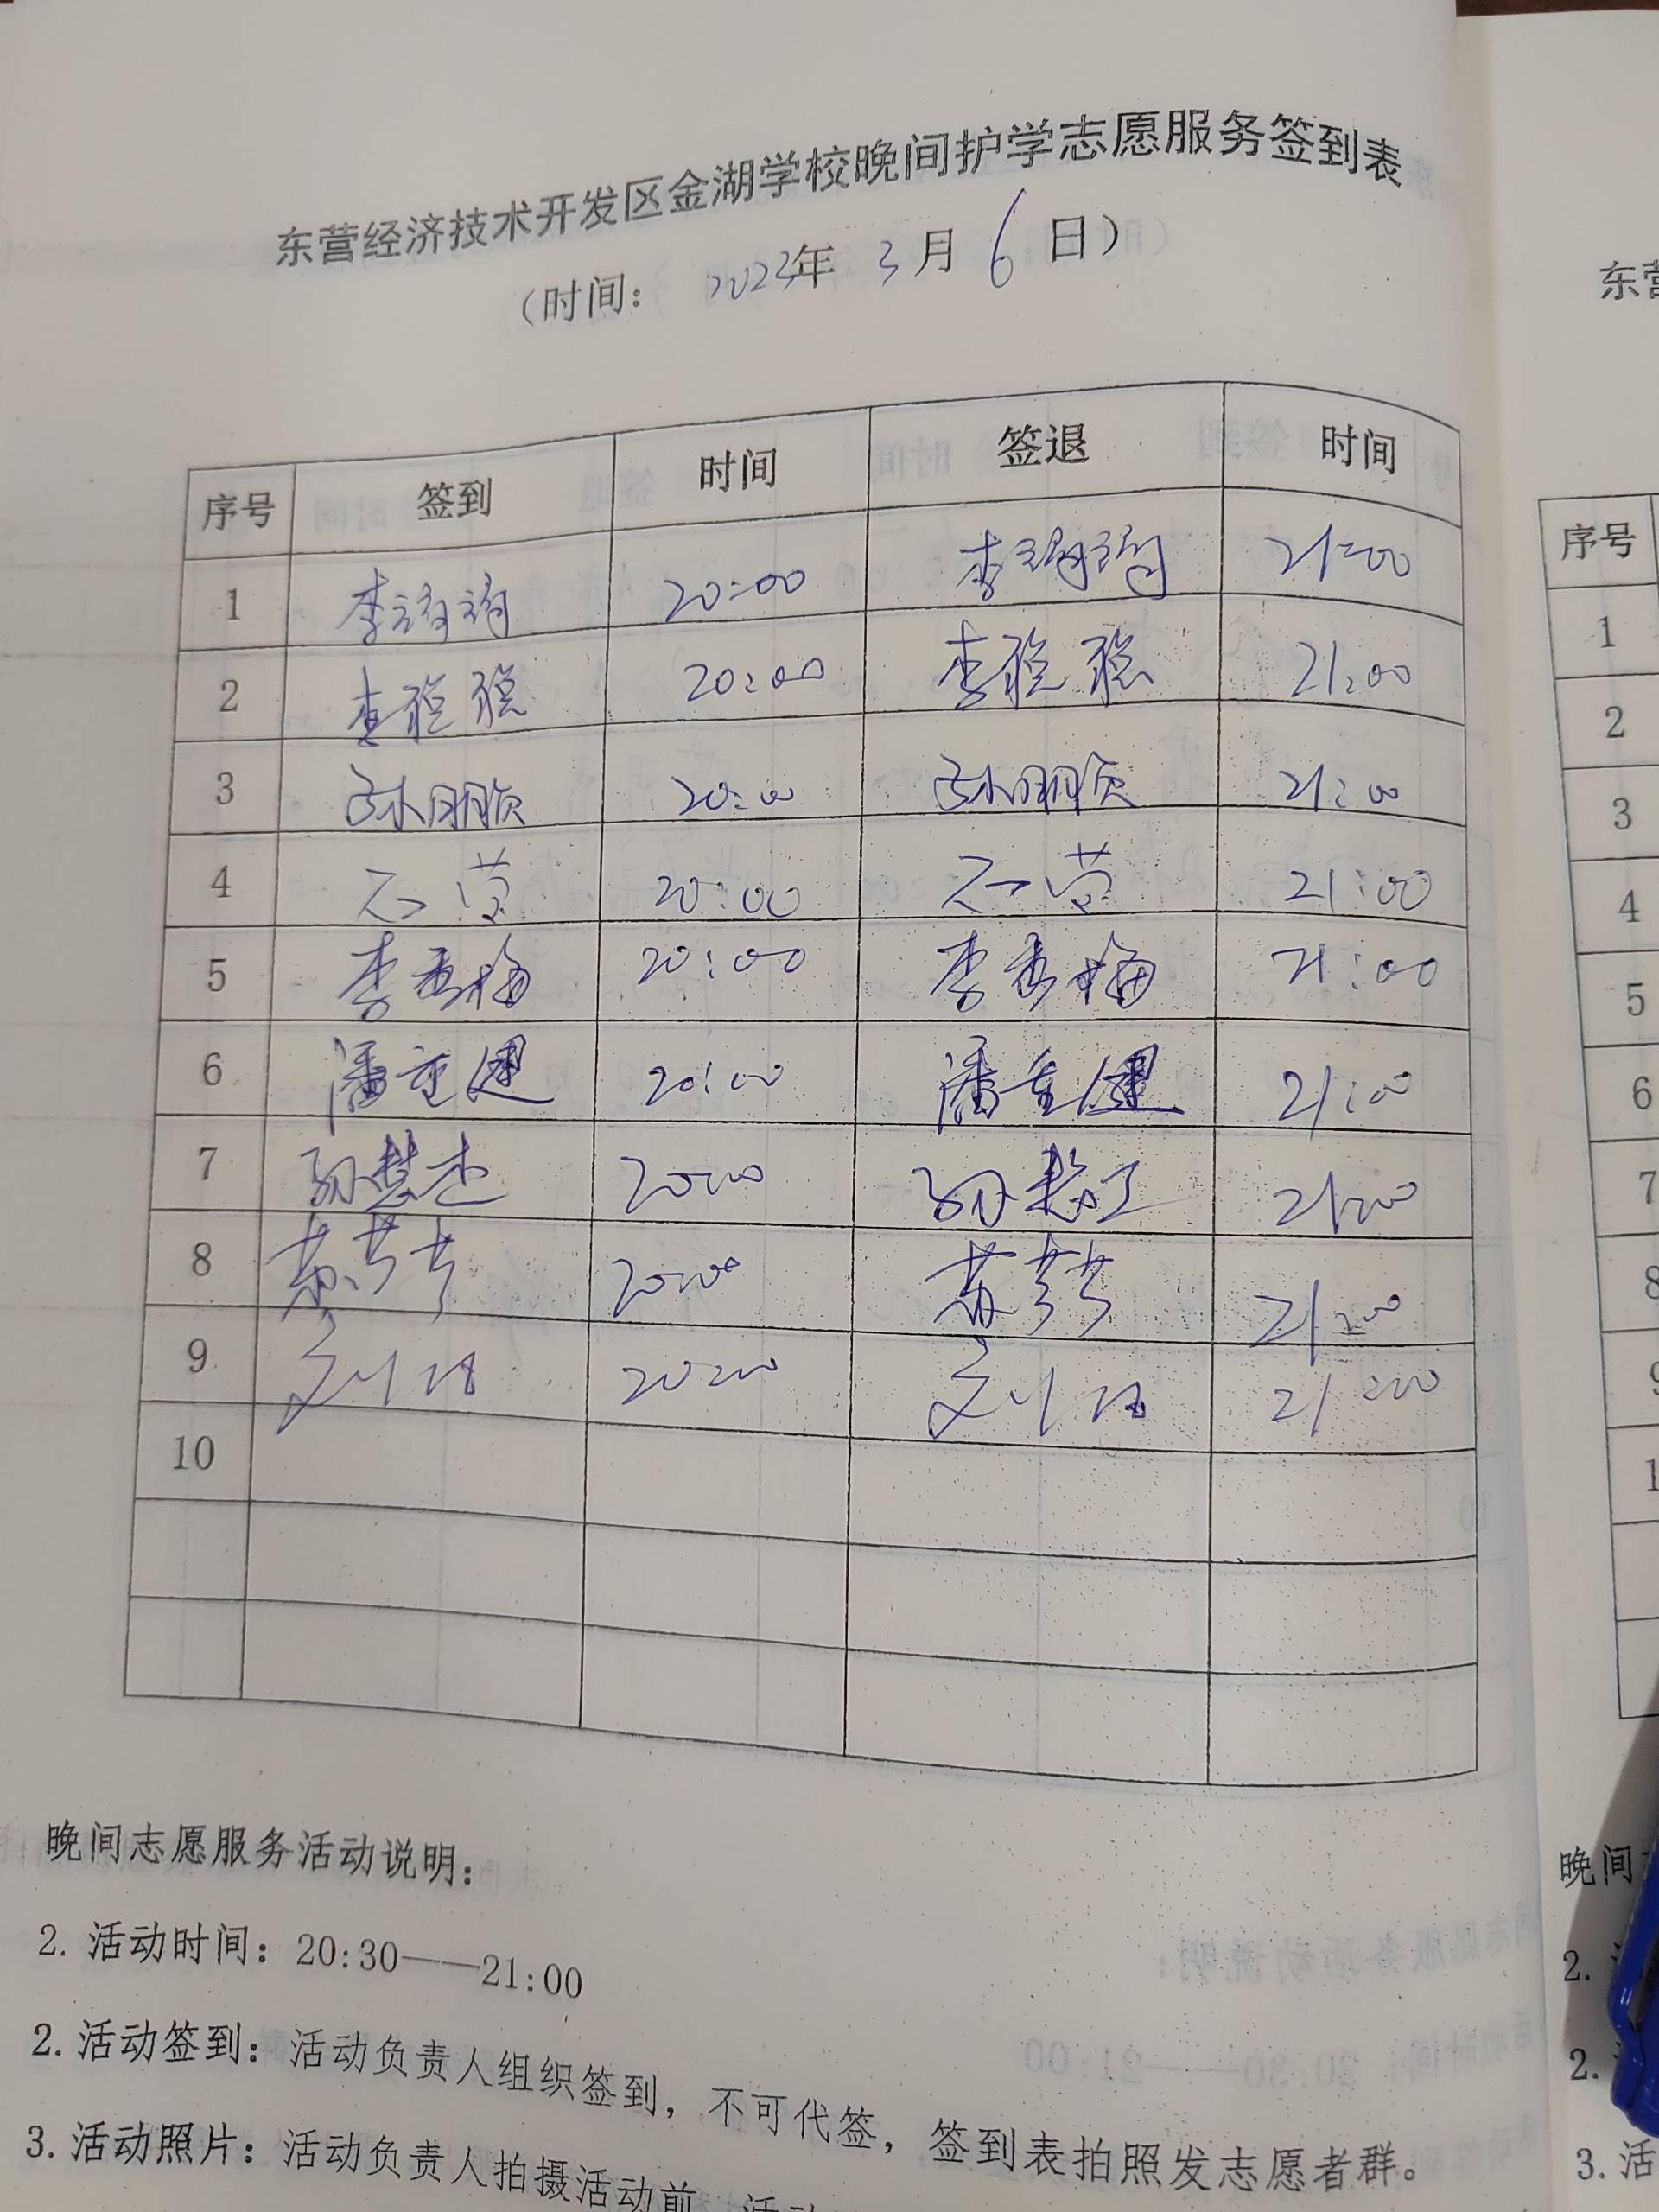 东营经济技术开发区金湖学校晚间护学志愿服务签到表
（时间： 2023年 3月 6日）
序号 签到 时间 签退 时间
1 李 20:00 李 21:00
2 李聪聪 20:00 李聪聪 21:00
3 孙朋顺 20:00 孙朋顺 21:00
4 石营 20:00 石营 21:00
5 李秀梅 20:00 李秀梅 21:00
6 潘重健 20:00 潘重健 21:00
7 孙慧 20:00 孙 21:00
8 苏芳芳 20:00 苏芳芳 21:00
9 刘 20:00 刘 21:00
10
晚间志愿服务活动说明：
2. 活动时间：20:30——21:00
2. 活动签到：活动负责人组织签到，不可代签，签到表拍照发志愿者群。
3. 活动照片：活动负责人拍摄活动前
东营
序号
1
2
3
4
5
6
7
8
9
1
晚间
2.
2.
3. 活